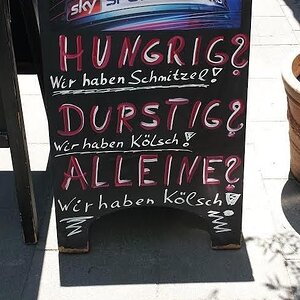 sky SPORTS
HUNGRIG?
Wir haben Schnitzel!
DURSTIG?
Wir haben Kölsch!
ALLEINE?
Wir haben Kölsch!